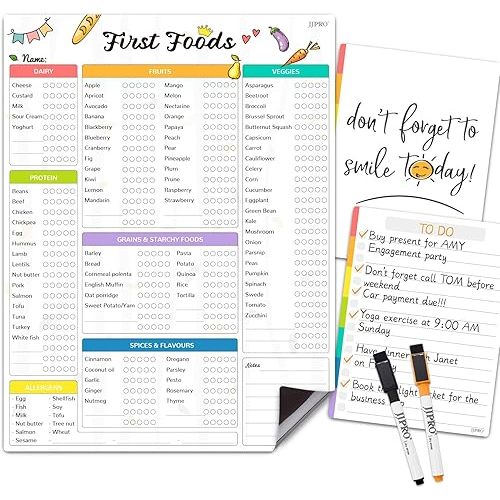 First Foods
JJPRO
Name:
DAIRY
Cheese
Custard
Milk
Sour Cream
Yoghurt
PROTEIN
Beans
Beef
Chicken
Chickpea
Egg
Hummus
Lamb
Lentils
Nut butter
Pork
Salmon
Tofu
Tuna
Turkey
White fish
ALLERGENS
- Egg - Shellfish
- Fish - Soy
- Milk - Tofu
- Nut butter - Tree nut
- Salmon - Wheat
- Sesame
FRUITS
Apple Mango
Apricot Melon
Avocado Nectarine
Banana Orange
Blackberry Papaya
Blueberry Peach
Cranberry Pear
Fig Pineapple
Grape Plum
Kiwi Prune
Lemon Raspberry
Mandarin Strawberry
GRAINS & STARCHY FOODS
Barley Pasta
Bread Potato
Cornmeal polenta Quinoa
English Muffin Rice
Oat porridge Tortilla
Sweet Potato/Yam
SPICES & FLAVOURS
Cinnamon Oregano
Coconut oil Parsley
Garlic Pesto
Ginger Rosemary
Nutmeg Thyme
VEGGIES
Asparagus
Beetroot
Broccoli
Brussel Sprout
Butternut Squash
Capsicum
Carrot
Cauliflower
Celery
Corn
Cucumber
Eggplant
Green Bean
Kale
Mushroom
Onion
Parsnip
Peas
Pumpkin
Spinach
Swede
Tomato
Zucchini
Notes
don't forget to
smile today!
TO DO
Buy present for AMY
Engagement party
Don't forget call TOM before
weekend
Car payment due!!!
Yoga exercise at 9:00 AM
Sunday
Have dinner with Janet
on Friday
Book the ticket for the
business
JJPRO
JJPRO